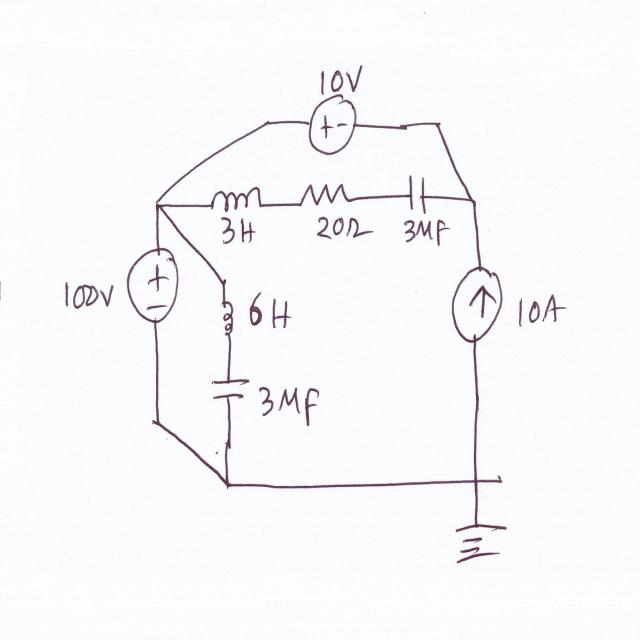 10V
+ -
3H
20Ω
3MF
100V
+
-
6H
3MF
10A